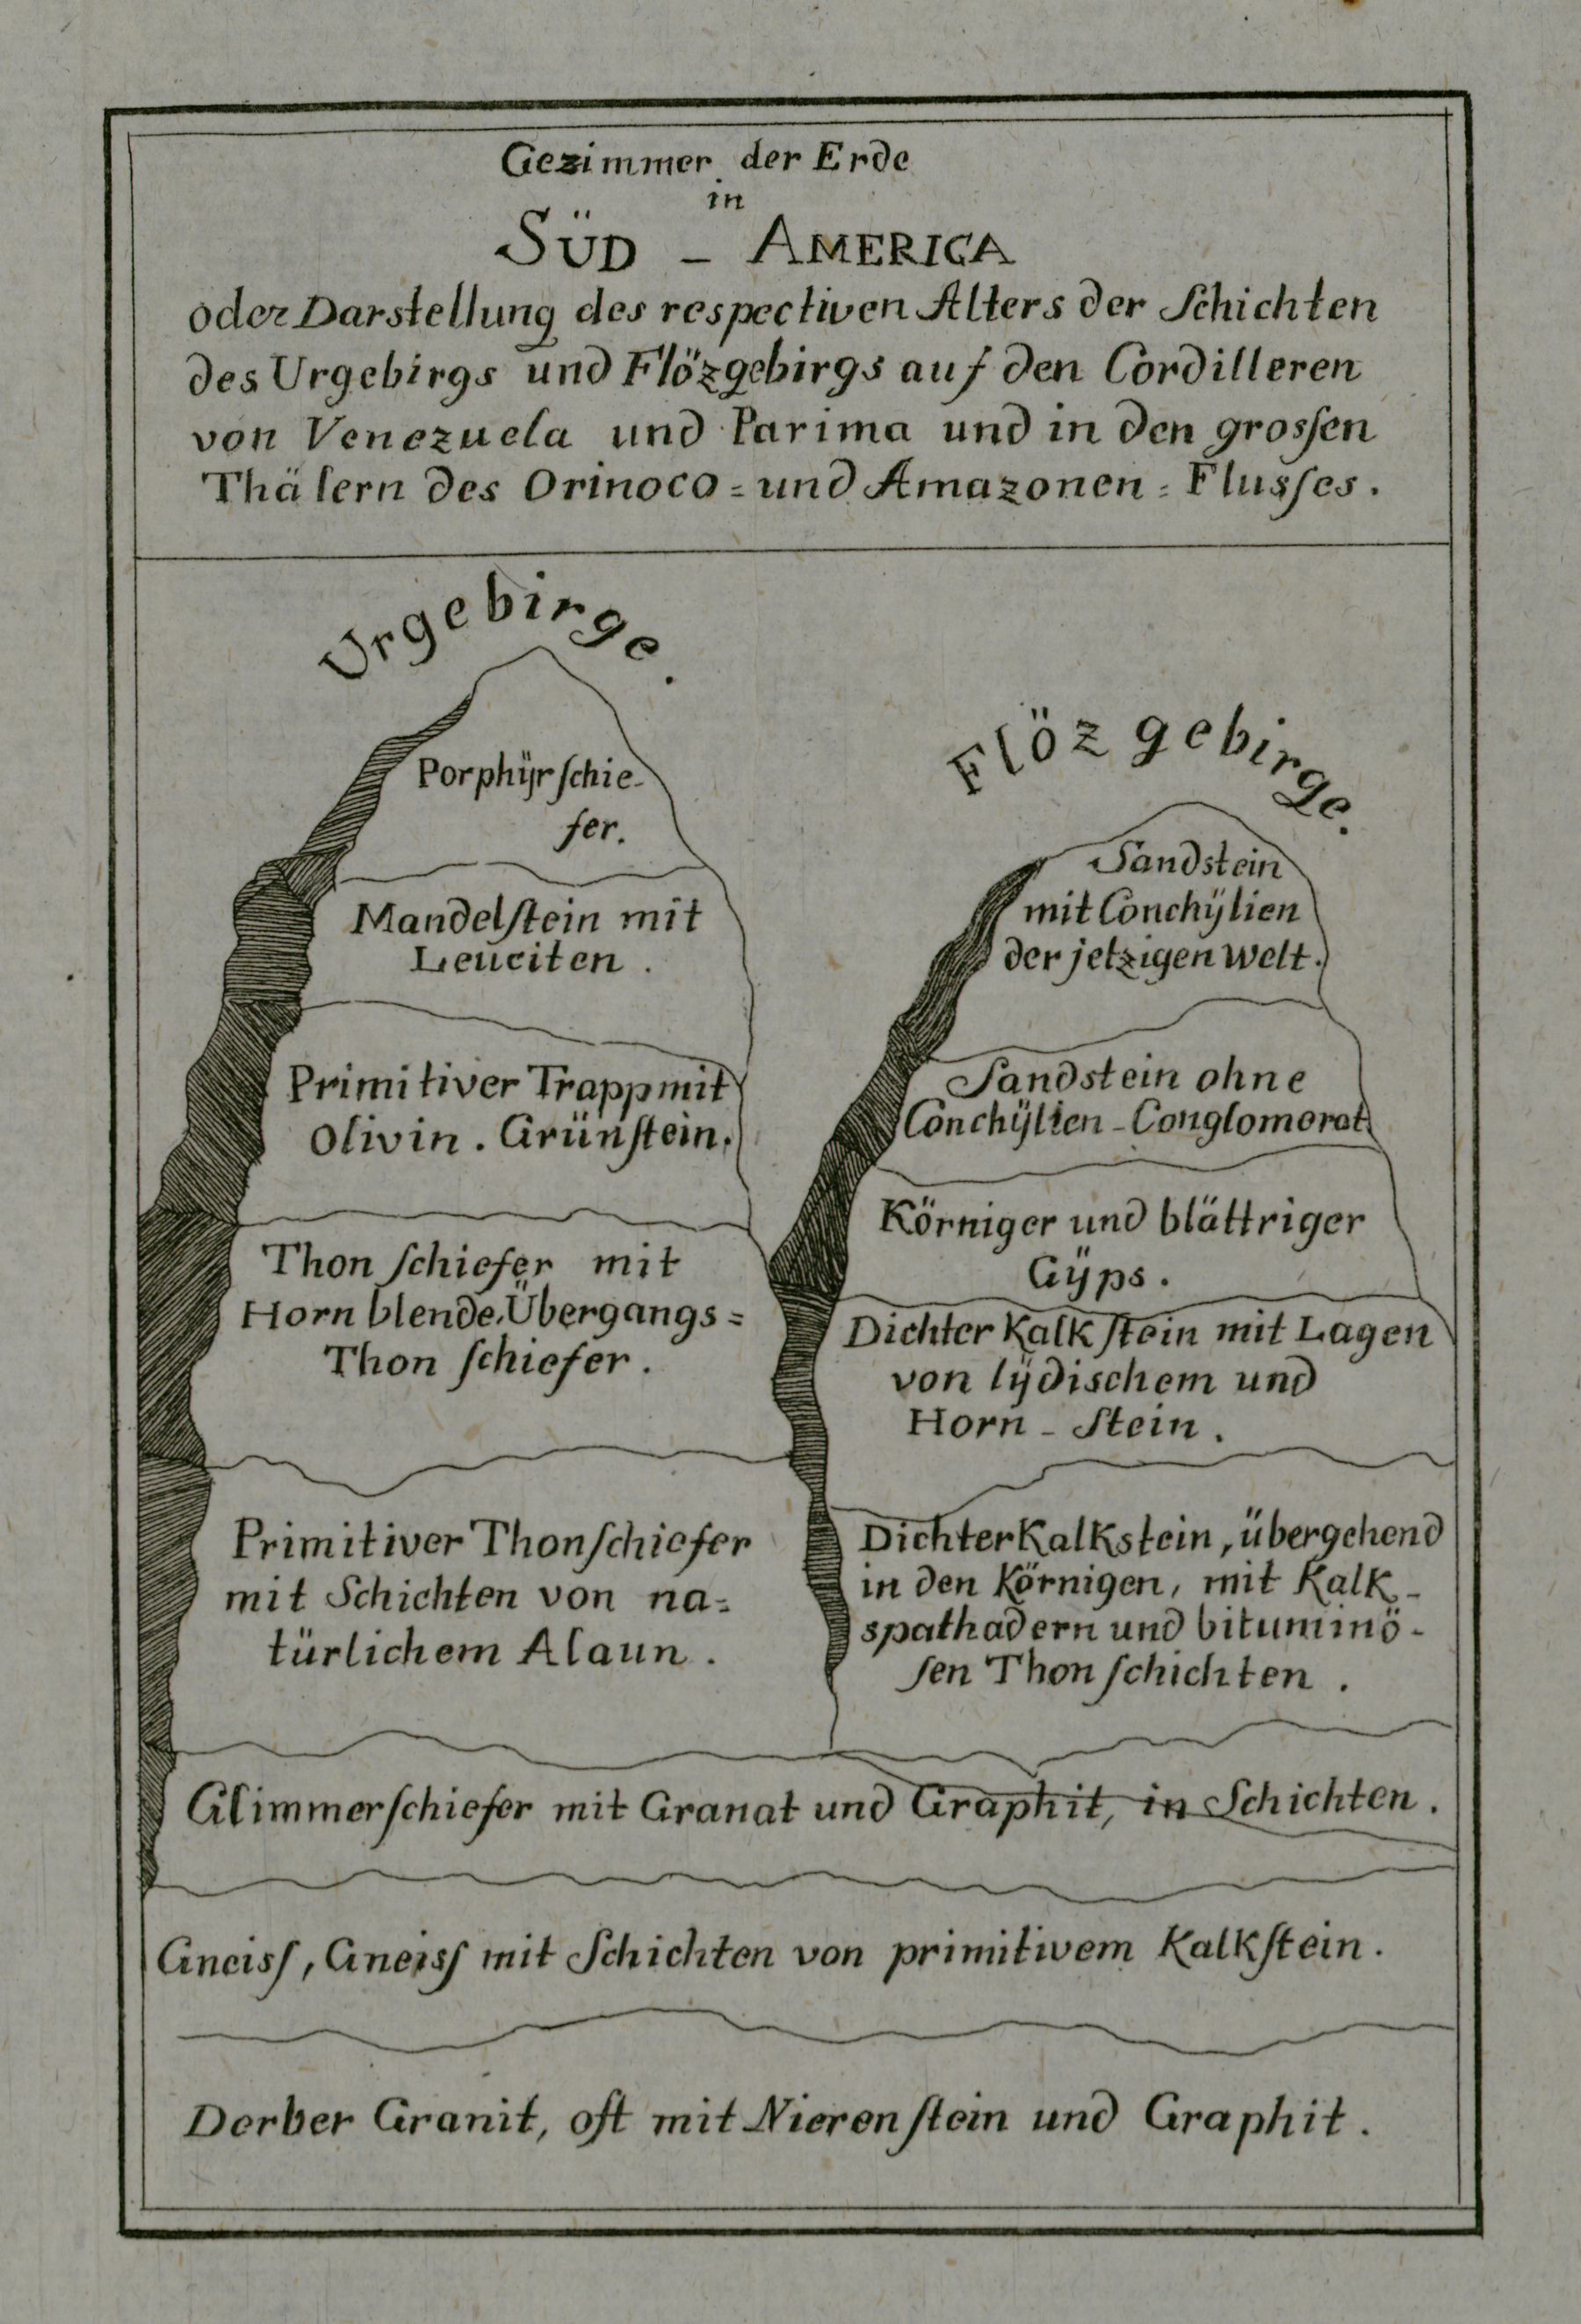 Gezimmer der Erde
in
SÜD - AMERICA
oder Darstellung des respectiven Alters der Schichten
des Urgebirgs und Flözgebirgs auf den Cordilleren
von Venezuela und Parima und in den grosſen
Thälern des Orinoco = und Amazonen = Flusſes.
Urgebirge.
Porphÿrſchie-
fer.
Mandelſtein mit
Leuciten.
Primitiver Trapp mit
Olivin. Grünſtein.
Thonſchiefer mit
Hornblende. Übergangs =
Thonſchiefer.
Primitiver Thonſchiefer
mit Schichten von na=
türlichem Alaun.
Flözgebirge.
Sandstein
mit Conchÿlien
der jetzigen Welt.
Sandstein ohne
Conchÿlien - Conglomerat.
Körniger und blättriger
Gÿps.
Dichter Kalkſtein mit Lagen
von lÿdischem und
Horn - Stein.
Dichter Kalkstein, übergehend
in den Körnigen, mit Kalk-
spathadern und bituminö-
ſen Thonſchichten.
Glimmerſchiefer mit Granat und Graphit, in Schichten.
Gneisſ, Gneisſ mit Schichten von primitivem Kalkſtein.
Derber Granit, oft mit Nierenſtein und Graphit.